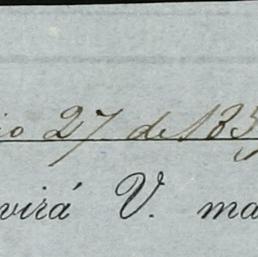 io 27 de 185
virá V. ma